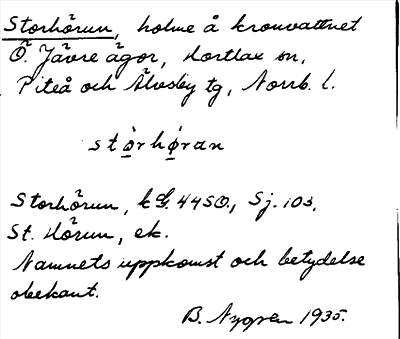 Storhörun, holme å kronvattnet
Ö. Jävre ägor, Hortlax sn,
Piteå och Älvsby tg, Norrb. l.
stòrhǿran
Storhörun, k S. 44 SO., Sj. 103.
St. Hörun, ek.
Namnets uppkomst och betydelse
obekant.
B. Nygren 1935.